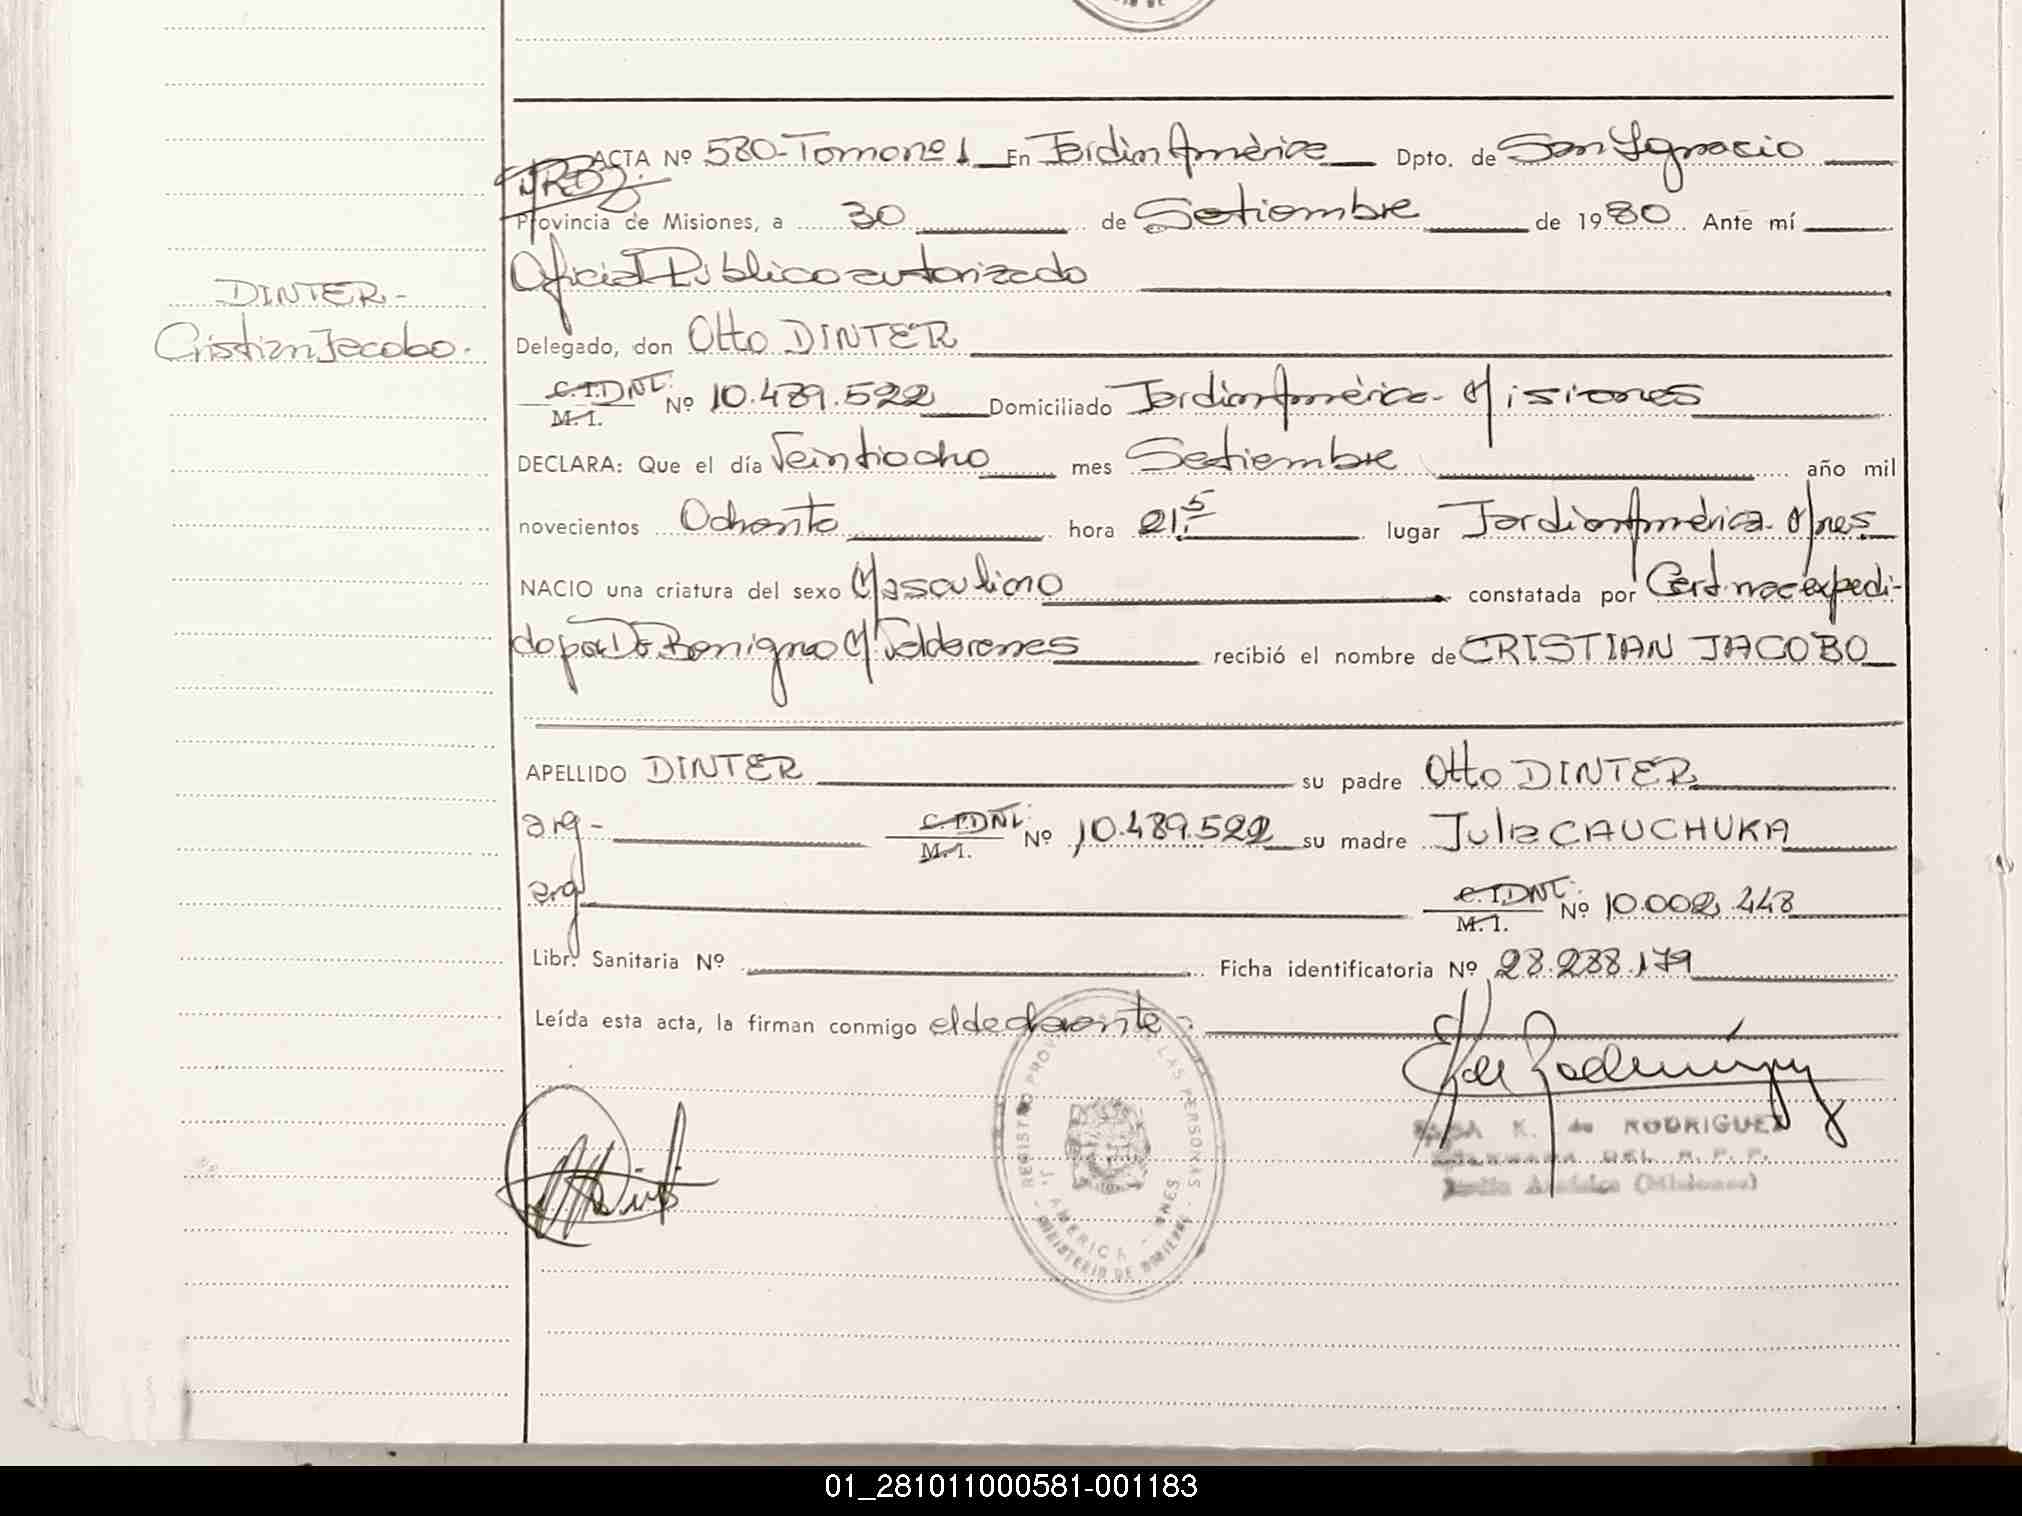 ACTA Nº 580-Tomo nº 1 En Jardín América Dpto. de San Ignacio
Provincia de Misiones, a 30 de Setiembre de 1980. Ante mí
Oficial Público autorizado
DINTER-
Cristian Jacobo.
Delegado, don Otto DINTER
C.I. DNI. M.I. Nº 10.489.522 Domiciliado Jardín América- Misiones
DECLARA: Que el día Veintiocho mes Setiembre año mil
novecientos Ochenta hora 21.5 lugar Jardín América- Mnes
NACIO una criatura del sexo Masculino constatada por Cert. nac expedi-
do por Dr Benigno M Valdarenes recibió el nombre de CRISTIAN JACOBO
APELLIDO DINTER su padre Otto DINTER
arg- C.I. DNI. M.I. Nº 10.489.522 su madre Julia CAUCHUKA
arg C.I. DNI. M.I. Nº 10.002.448
Libr. Sanitaria Nº Ficha identificatoria Nº 28.288.179
Leída esta acta, la firman conmigo el declarante.
REGISTRO PROVINCIAL DE LAS PERSONAS
J. AMERICA - MNES
MINISTERIO DE GOBIERNO
K. de RODRIGUEZ
DEL R. P. P.
Jardín América (Misiones)
01_281011000581-001183